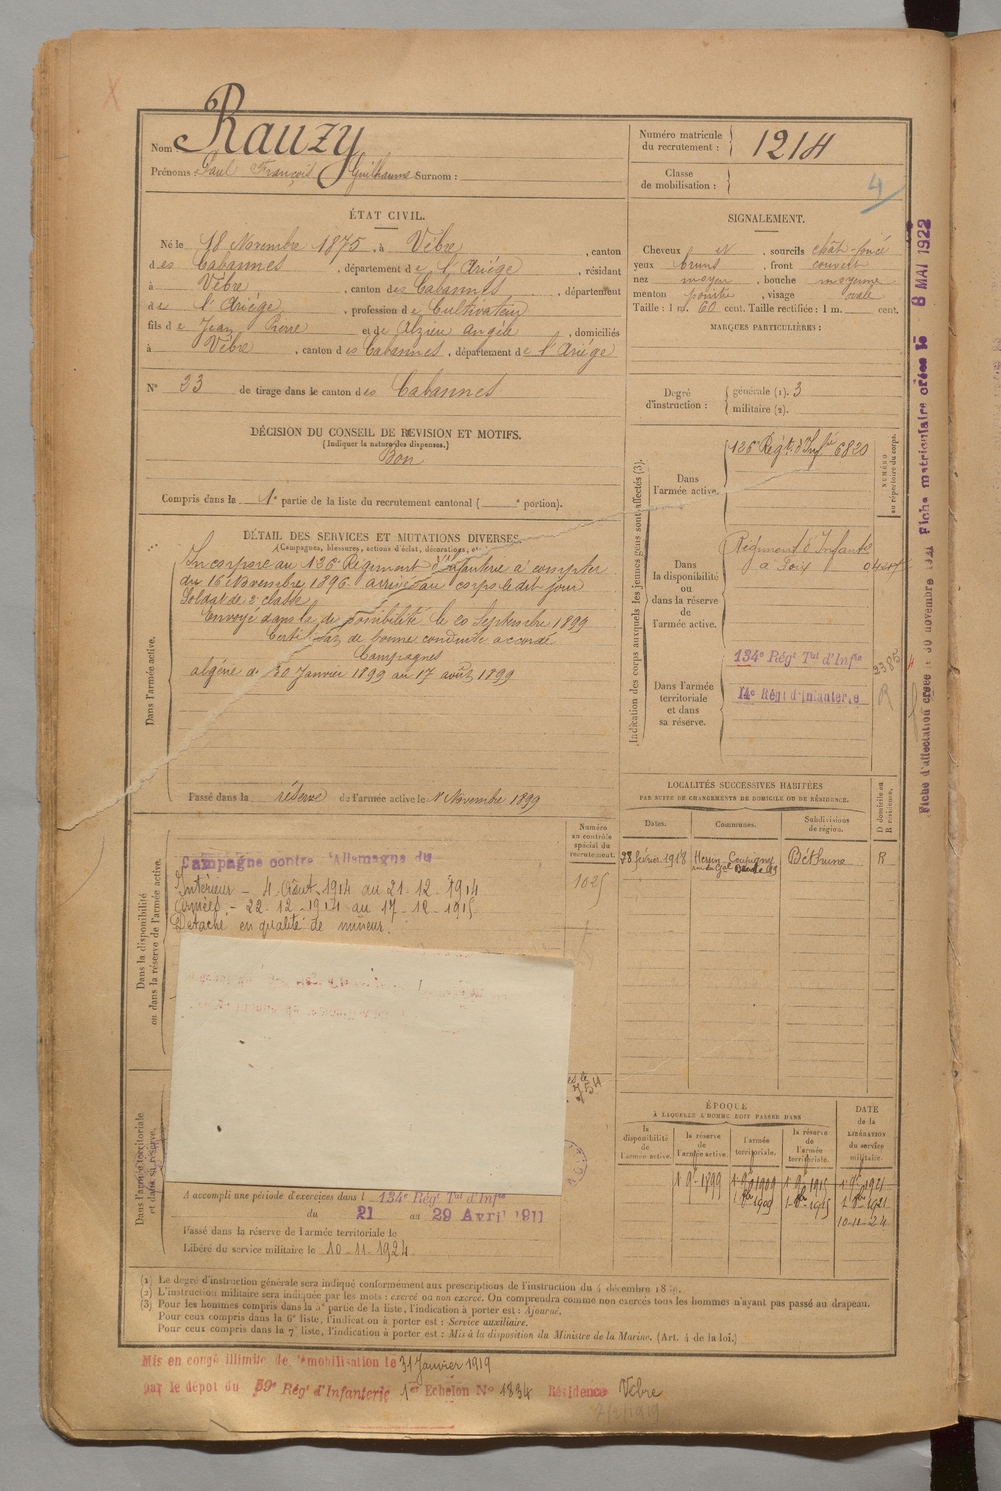 Nom : Rauzy
Prénoms : Paul François Guilhaume Surnom :
Numéro matricule
du recrutement : 1214
Classe
de mobilisation :
4
ÉTAT CIVIL.
Né le 18 Novembre 1875, à Vèbre, canton
des Cabannes, département de l'Ariége, résidant
à Vèbre, canton des Cabannes, département
de l'Ariége, profession de Cultivateur
fils de Jean Pierre et de Alzieu Angèle, domiciliés
à Vèbre, canton des Cabannes, département de l'Ariége
N° 23 de tirage dans le canton des Cabannes
SIGNALEMENT.
Cheveux N, sourcils chât. foncé
yeux bruns, front couvert
nez moyen, bouche moyenne
menton pointu, visage ovale
Taille : 1 m. 60 cent. Taille rectifiée : 1 m. cent.
MARQUES PARTICULIÈRES :
Degré
d'instruction :
générale (1). 3
militaire (2).
DÉCISION DU CONSEIL DE REVISION ET MOTIFS.
(Indiquer la nature des dispenses.)
Bon
Compris dans la 1e partie de la liste du recrutement cantonal ( e portion).
DÉTAIL DES SERVICES ET MUTATIONS DIVERSES.
(Campagnes, blessures, actions d'éclat, décorations, e
Dans l'armée active.
Incorporé au 126e Régiment d'Infanterie à compter
du 16 Novembre 1896. arrivé au corps le dit jour
Soldat de 2e classe
Envoyé dans la disponibilité le 20 Septembre 1899
Certificat de bonne conduite accordé
Campagnes
algérie du 30 Janvier 1899 au 17 août 1899
Passé dans la réserve de l'armée active le 1er Novembre 1899
Indication des corps auxquels les jeunes gens sont affectés (3).
NUMÉRO
au répertoire du corps.
Dans
l'armée active.
126e Régt d'Infie 6820
Dans
la disponibilité
ou
dans la réserve
de
l'armée active.
Régiment d'Infanterie
à Foix
Dans l'armée
territoriale
et dans
sa réserve.
134e Régt Tal d'Infie
14e Régt d'Infanterie
R
Fiche d'affectation créée le 30 novembre 1921 Fiche matriculaire créée le 8 MAI 1922
LOCALITÉS SUCCESSIVES HABITÉES
PAR SUITE DE CHANGEMENTS DE DOMICILE OU DE RÉSIDENCE.
D domicile ou
R résidence.
Dates. Communes. Subdivisions
de région.
28 février 1918 Hersin-Coupigny Béthune R
Dans la disponibilité
ou dans la réserve de l'armée active.
Numéro
au contrôle
spécial du
recrutement.
1025
Campagne contre l'Allemagne du
Intérieur - 4 Août 1914 au 21-12-1914
Armées - 22-12-1914 au 17-12-1915
Détaché en qualité de mineur.
Dans l'armée territoriale
et dans sa réserve.
A accompli une période d'exercices dans l 134e Régt Tal d'Infie
du 21 au 29 Avril 1911
Passé dans la réserve de l'armée territoriale le
Libéré du service militaire le 10-11-1924
ÉPOQUE
À LAQUELLE L'HOMME DOIT PASSER DANS
DATE
de la
LIBÉRATION
du service
militaire.
la
disponibilité
de
l'armée active.
la réserve
de
l'armée active.
l'armée
territoriale.
la réserve
de
l'armée
territoriale.
1 9bre 1899 1 9bre 1909 1 9bre 1915 1 9bre 1921
10-11-24
(1) Le degré d'instruction générale sera indiqué conformément aux prescriptions de l'instruction du 4 décembre 18
(2) L'instruction militaire sera indiquée par les mots : exercé ou non exercé. On comprendra comme non exercés tous les hommes n'ayant pas passé au drapeau.
(3) Pour les hommes compris dans la 4e partie de la liste, l'indication à porter est : Ajourné.
Pour ceux compris dans la 6e liste, l'indication à porter est : Service auxiliaire.
Pour ceux compris dans la 7e liste, l'indication à porter est : Mis à la disposition du Ministre de la Marine. (Art. 4 de la loi.)
Mis en congé illimité de démobilisation le 31 Janvier 1919
par le dépôt du 59e Régt d'Infanterie 1er Echelon No 1834 Résidence Vèbre